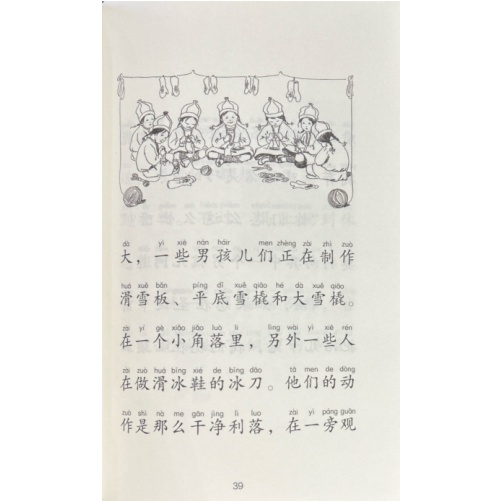 dà yì xiē nán háir men zhèng zài zhì zuò
大，一些男孩儿们正在制作
huá xuě bǎn píng dǐ xuě qiāo hé dà xuě qiāo
滑雪板、平底雪橇和大雪橇。
zài yí gè xiǎo jiǎo luò lǐ lìng wài yì xiē rén
在一个小角落里，另外一些人
zài zuò huá bīng xié de bīng dāo tā men de dòng
在做滑冰鞋的冰刀。他们的动
zuò shì nà me gān jìng lì luo zài yì páng guān
作是那么干净利落，在一旁观
39